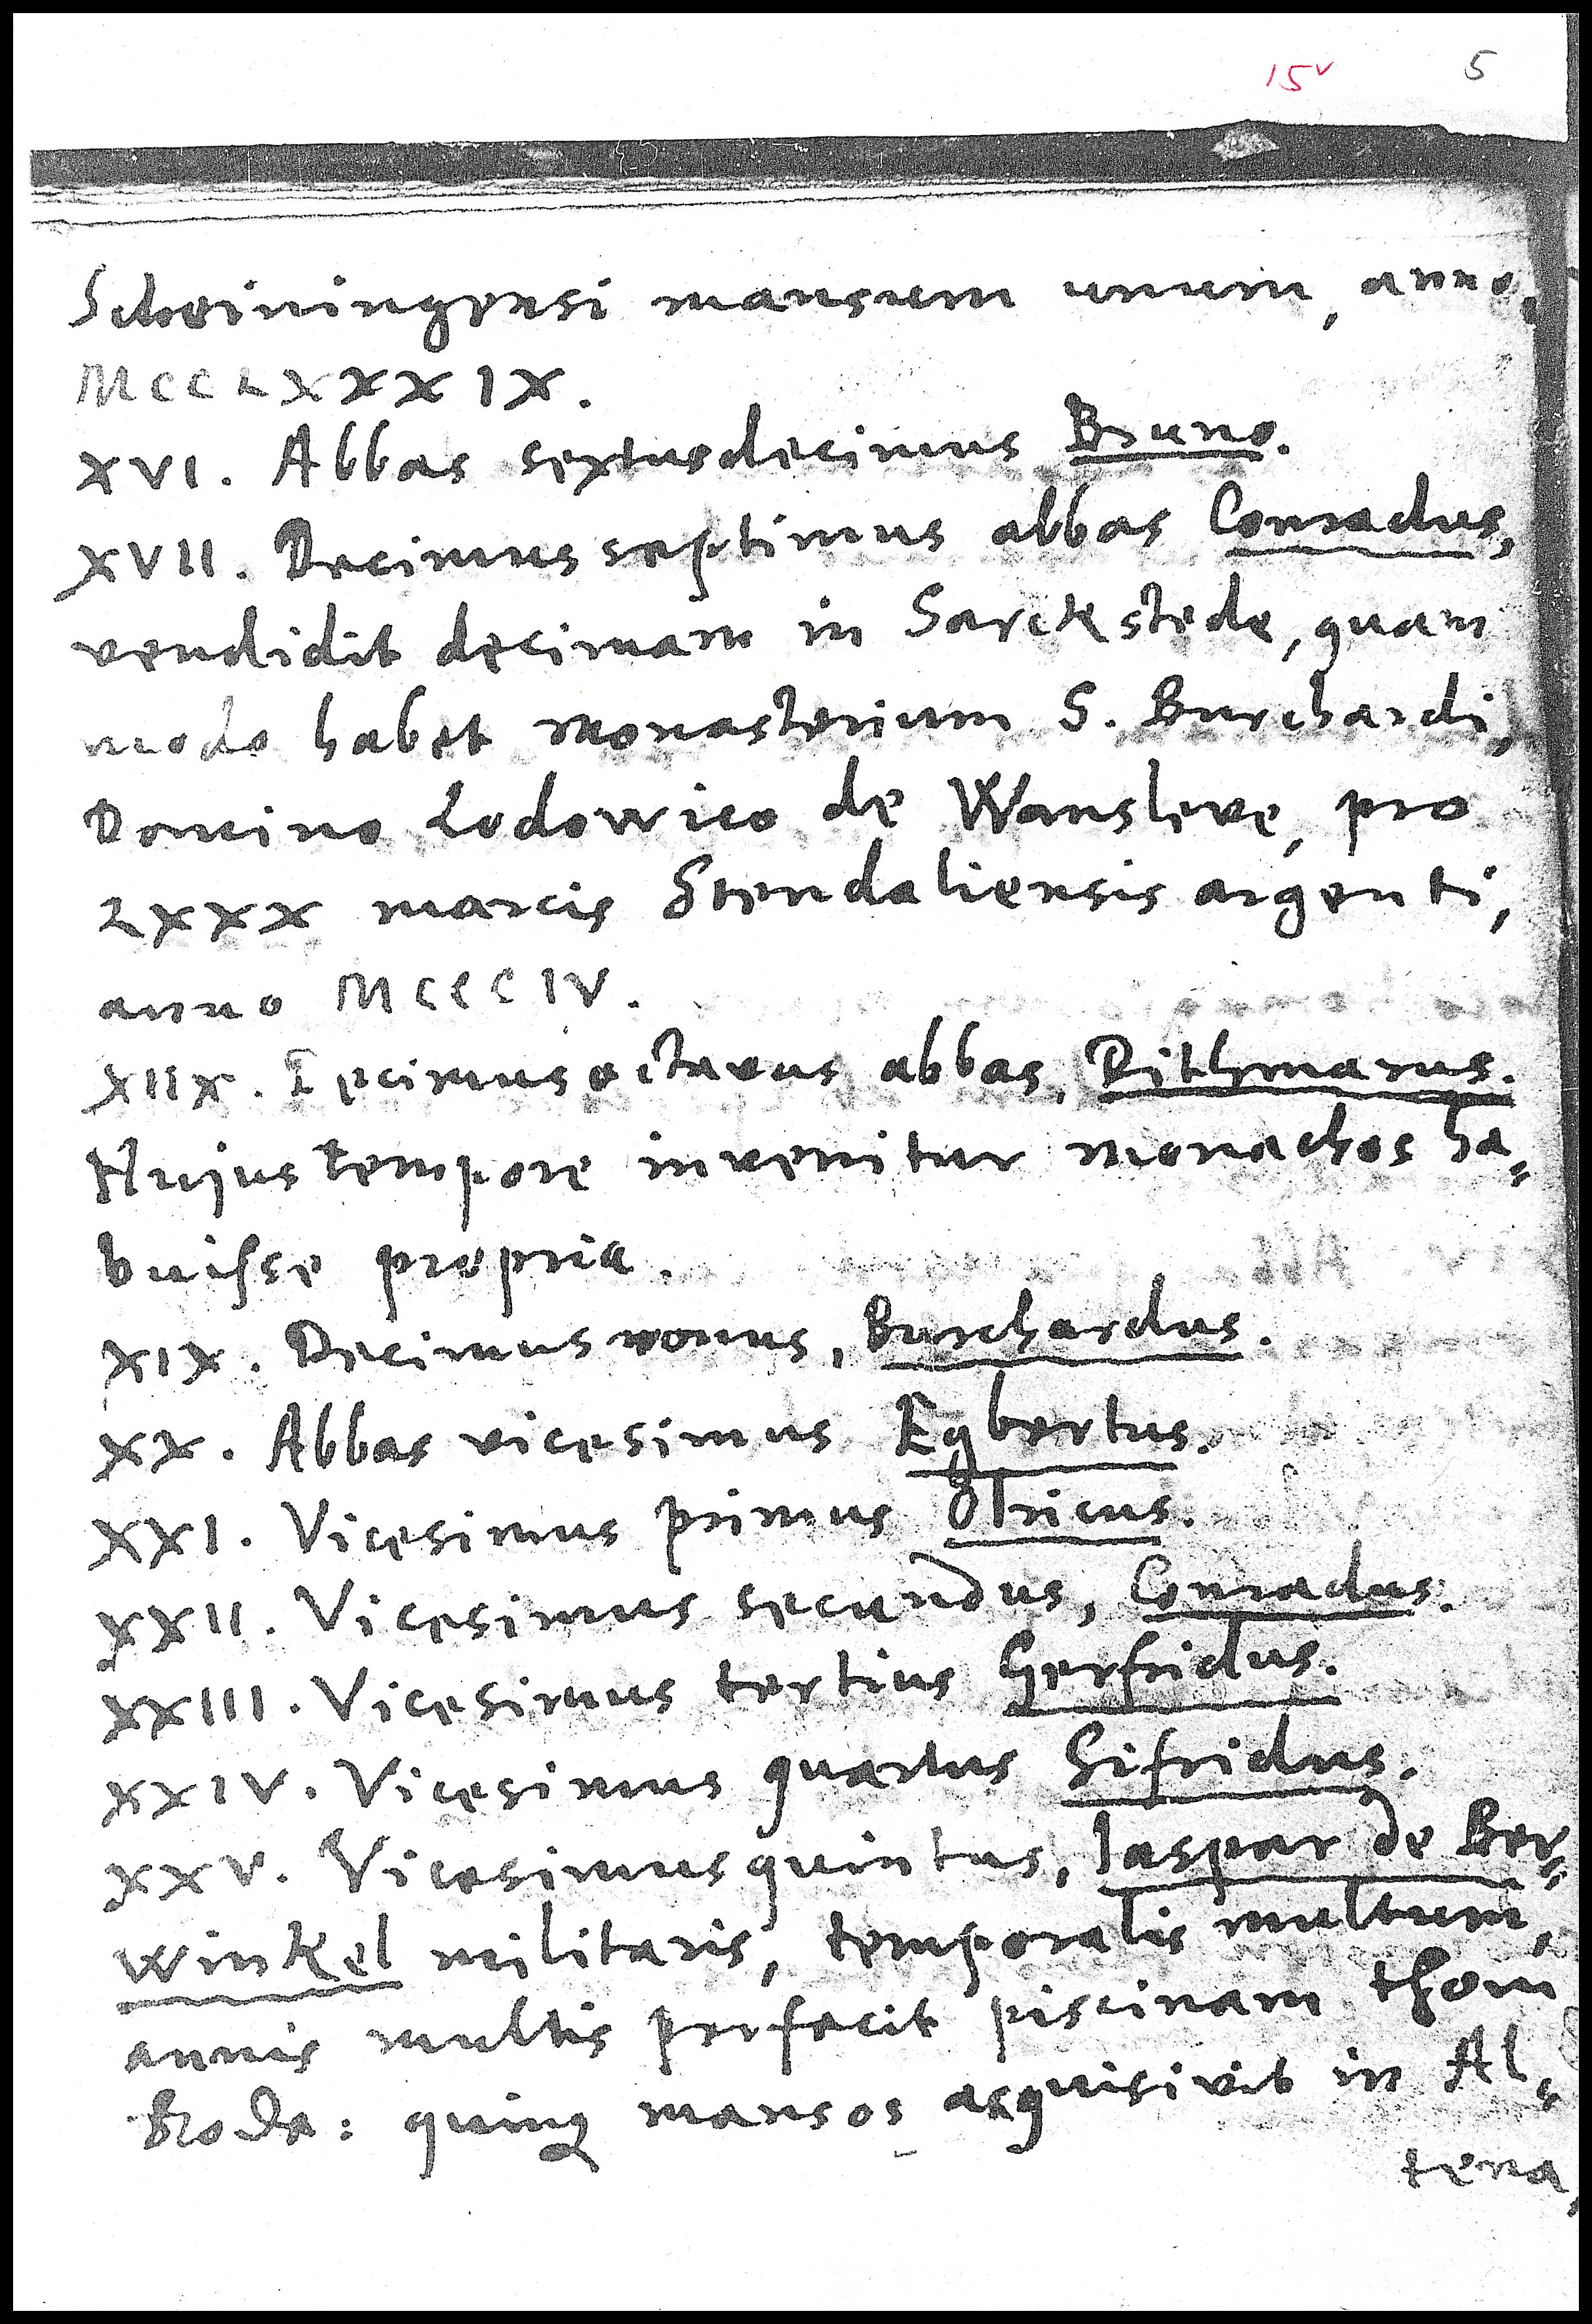 15v 5
Scheiningensi mansum unum, anno,
MCCLXXXIX.
XVI. Abbas sextusdecimus Bruno.
XVII. Decimus septimus abbas Conradus,
vendidit decimam in Sarckstede, quam
modo habet monasterium S. Burchardi,
Domino Lodowico de Wansleve, pro
LXXX marcis Stendaliensis argenti,
anno MCCCIV.
XIIX. Decimus octavus abbas, Dithmarus.
Hujus tempore invenitur monachos ha=
buisse propria.
XIX. Decimus nonus, Burchardus.
XX. Abbas vicesimus Egbertus.
XXI. Vicesimus primus Olricus.
XXII. Vicesimus secundus, Conradus.
XXIII. Vicesimus tertius Gerfridus.
XXIV. Vicesimus quartus Sifridus.
XXV. Vicesimus quintus, Jaspar de Ber=
winkel militaris, temporalis multum,
annis multis perfecit piscinam thom
Roda: quinq mansos acquisivit in Al=
tena,